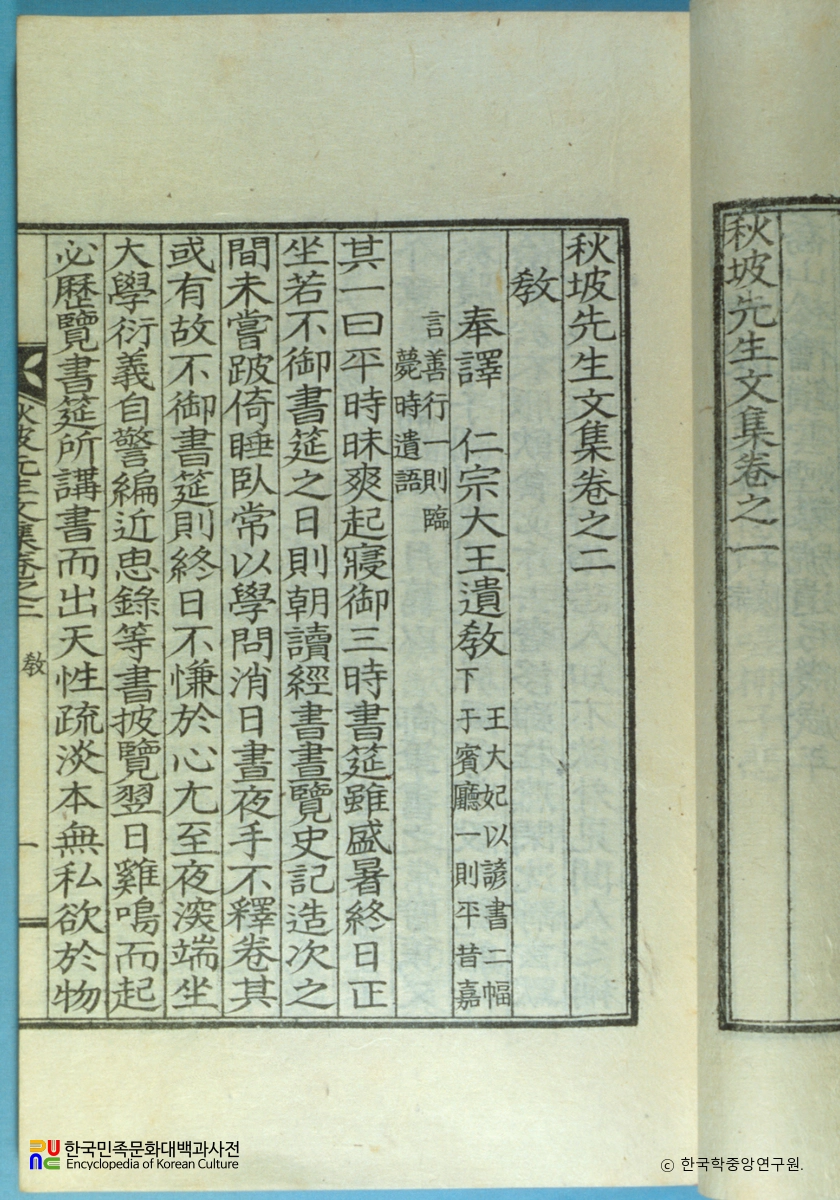 秋坡先生文集卷之一
秋坡先生文集卷之二
敎
奉譯 仁宗大王遺敎
王大妃以諺書二幅
下于賓廳一則平昔嘉
言善行一則臨
薨時遺語
其一曰平時昧爽起寢御三時書筵雖盛暑終日正
坐若不御書筵之日則朝讀經書晝覽史記造次之
間未嘗跛倚睡臥常以學問消日晝夜手不釋卷其
或有故不御書筵則終日不慊於心尤至夜深端坐
大學衍義自警編近思錄等書披覽翌日雞鳴而起
必歷覽書筵所講書而出天性疏淡本無私欲於物
秋坡先生文集卷之二
敎
一
한국민족문화대백과사전
Encyclopedia of Korean Culture
ⓒ 한국학중앙연구원.